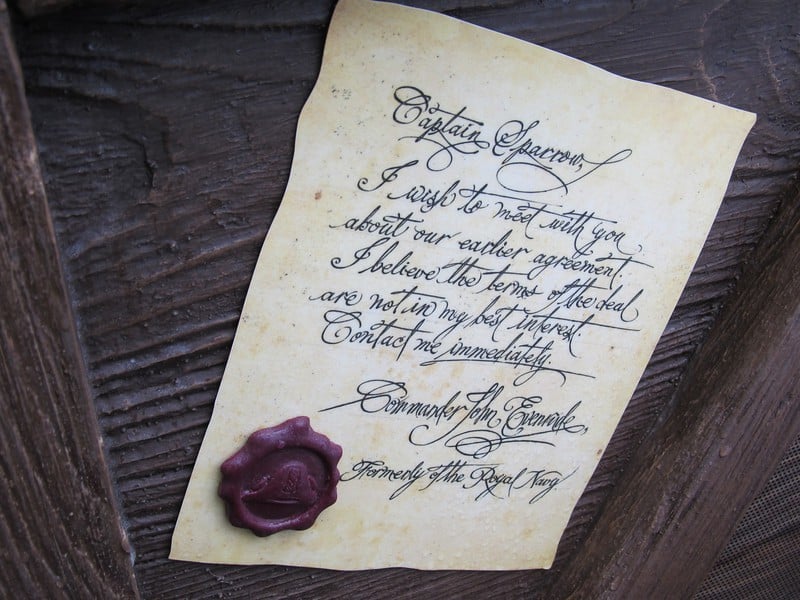 Captain Sparrow,
I wish to meet with you
about our earlier agreement.
I believe the terms of the deal
are not in my best interest.
Contact me immediately.
Commander John Evenride,
Formerly of the Royal Navy